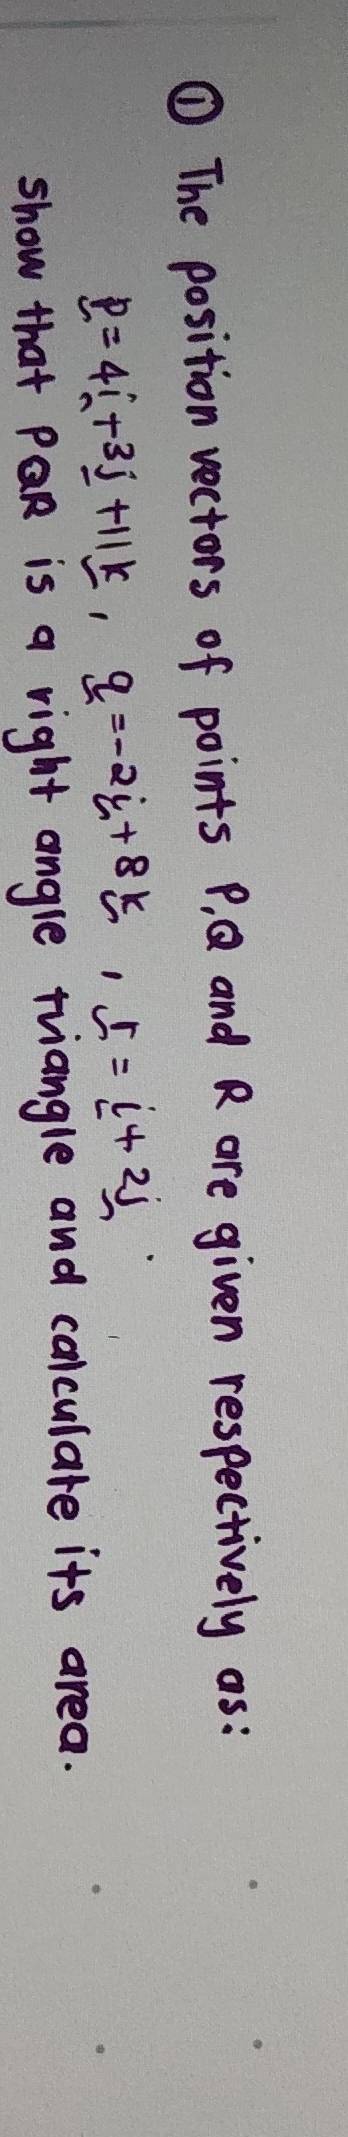 ① The position vectors of points P,Q and R are given respectively as:
p = 4i + 3j + 11k , q = -2i + 8k , r = i + 2j .
show that PQR is a right angle triangle and calculate its area.